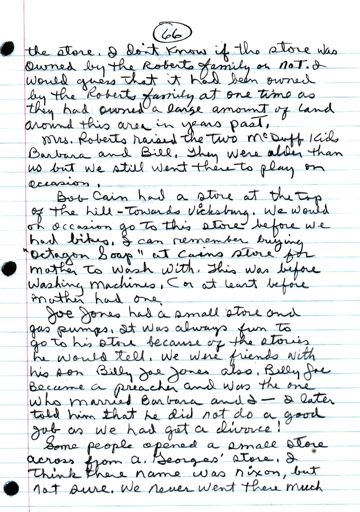 66
the store. I don't know if the store was
owned by the Roberts family or not. I
would guess that it had been owned
by the Roberts family at one time as
they had owned a large amount of land
around this area in years past.
Mrs. Roberts raised the two McDuff kids
Barbara and Bill. They were older than
us but we still went there to play on
occasion.
Bob Cain had a store at the top
of the hill - towards Vicksburg. We would
on occasion go to this store before we
had bikes. I can remember buying
"Octagon Soap" at Cains store for
mother to wash with. This was before
washing machines, (or at least before
mother had one.
Joe Jones had a small store and
gas pumps. It was always fun to
go to his store because of the stories
he would tell. We were friends with
his son Billy Joe Jones also. Billy Joe
became a preacher and was the one
who married Barbara and I - I later
told him that he did not do a good
job as we had got a divorce!
Some people opened a small store
across from A. Georges' store. I
think there name was Nixon, but
not sure. We never went there much